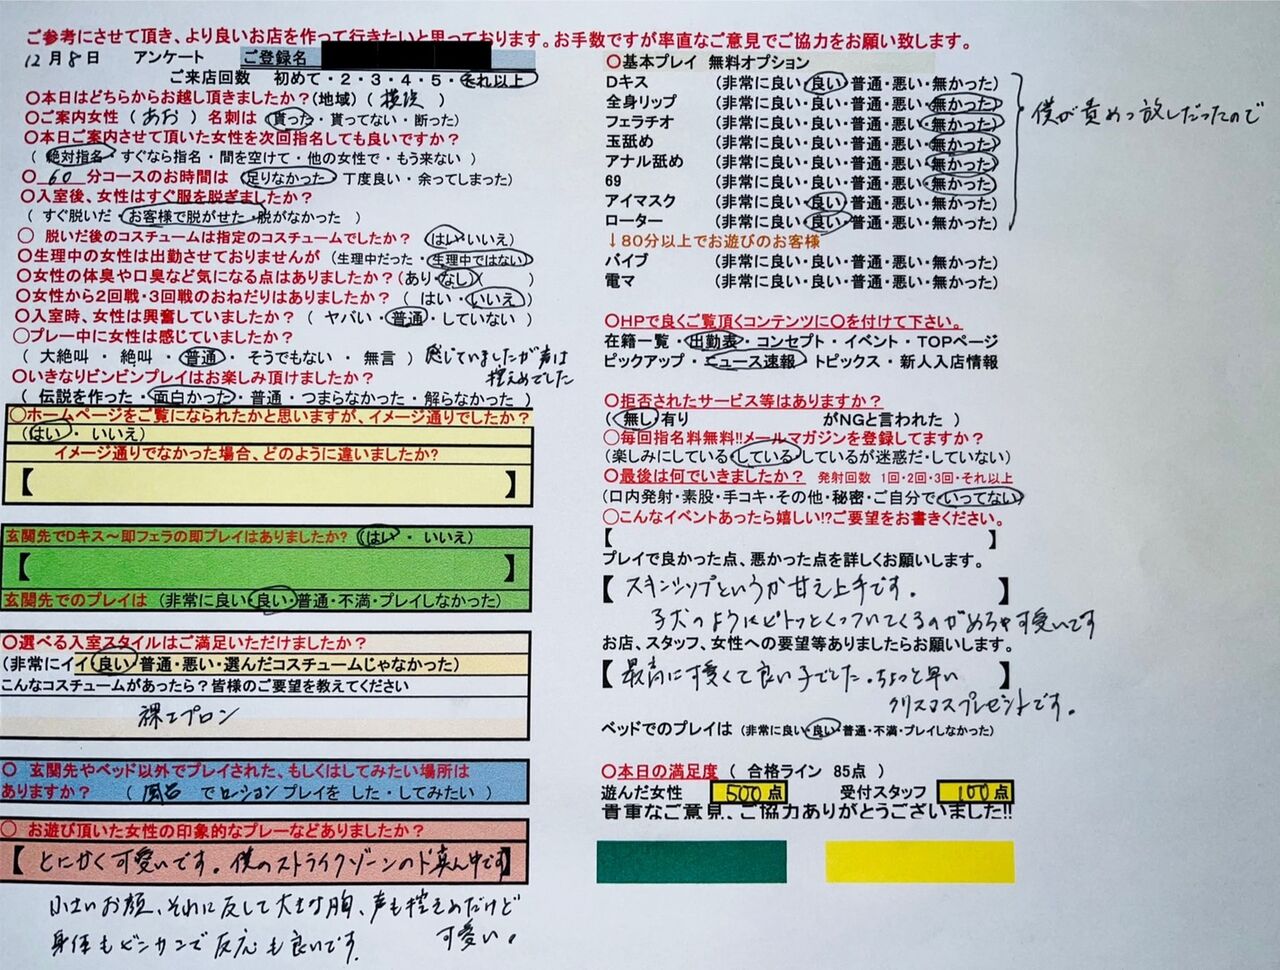 ご参考にさせて頂き、より良いお店を作って行きたいと思っております。お手数ですが率直なご意見でご協力をお願い致します。
12月8日 アンケート ご登録名
ご来店回数 初めて・2・3・4・5・それ以上
〇本日はどちらからお越し頂きましたか?(地域) ( 横浜 )
〇ご案内女性 ( あお ) 名刺は (貰った・貰ってない・断った)
〇本日ご案内させて頂いた女性を次回指名しても良いですか?
( 絶対指名・すぐなら指名・間を空けて・他の女性で・もう来ない )
〇 60 分コースのお時間は (足りなかった・丁度良い・余ってしまった)
〇入室後、女性はすぐ服を脱ぎましたか?
( すぐ脱いだ・お客様で脱がせた・脱がなかった )
〇 脱いだ後のコスチュームは指定のコスチュームでしたか? (はい・いいえ)
〇生理中の女性は出勤させておりませんが (生理中だった・生理中ではない)
〇女性の体臭や口臭など気になる点はありましたか?(あり・なし)( )
〇女性から2回戦・3回戦のおねだりはありましたか? ( はい・いいえ )
〇入室時、女性は興奮していましたか? ( ヤバい・普通・していない )
〇プレー中に女性は感じていましたか?
( 大絶叫・絶叫・普通・そうでもない・無言 ) 感じていましたが声は
控えめでした
〇いきなりビンビンプレイはお楽しみ頂けましたか?
( 伝説を作った・面白かった・普通・つまらなかった・解らなかった )
〇ホームページをご覧になられたかと思いますが、イメージ通りでしたか?
(はい・ いいえ)
イメージ通りでなかった場合、どのように違いましたか?
【 】
玄関先でDキス～即フェラの即プレイはありましたか? (はい ・ いいえ)
【 】
玄関先でのプレイは (非常に良い・良い・普通・不満・プレイしなかった)
〇選べる入室スタイルはご満足いただけましたか?
(非常にイイ・良い・普通・悪い・選んだコスチュームじゃなかった)
こんなコスチュームがあったら?皆様のご要望を教えてください
裸エプロン
〇 玄関先やベッド以外でプレイされた、もしくはしてみたい場所は
ありますか? ( 風呂 でローションプレイを した・してみたい )
〇 お遊び頂いた女性の印象的なプレーなどありましたか?
【 とにかく可愛いです。僕のストライクゾーンのド真ん中です 】
小さいお顔、それに反して大きな胸、声も控えめだけど
可愛い。
身体もビンカンで反応も良いです。
〇基本プレイ 無料オプション
Dキス (非常に良い・良い・普通・悪い・無かった)
全身リップ (非常に良い・良い・普通・悪い・無かった)
フェラチオ (非常に良い・良い・普通・悪い・無かった)
玉舐め (非常に良い・良い・普通・悪い・無かった)
アナル舐め (非常に良い・良い・普通・悪い・無かった)
69 (非常に良い・良い・普通・悪い・無かった)
アイマスク (非常に良い・良い・普通・悪い・無かった)
ローター (非常に良い・良い・普通・悪い・無かった)
僕が責めっ放しだったので
↓80分以上でお遊びのお客様
バイブ (非常に良い・良い・普通・悪い・無かった)
電マ (非常に良い・良い・普通・悪い・無かった)
〇HPで良くご覧頂くコンテンツに〇を付けて下さい。
在籍一覧・出勤表・コンセプト・イベント・TOPページ
ピックアップ・ニュース速報・トピックス・新人入店情報
〇拒否されたサービス等はありますか?
( 無し・有り がNGと言われた )
〇毎回指名料無料!!メールマガジンを登録してますか?
(楽しみにしている・している・しているが迷惑だ・していない)
〇最後は何でいきましたか? 発射回数 1回・2回・3回・それ以上
(口内発射・素股・手コキ・その他・秘密・ご自分で・いってない)
〇こんなイベントあったら嬉しい!?ご要望をお書きください。
【 】
プレイで良かった点、悪かった点を詳しくお願いします。
【 スキンシップというか甘え上手です。 】
子犬のようにピトッとくっついてくるのがめちゃ可愛いです
お店、スタッフ、女性への要望等ありましたらお願いします。
【 最高に可愛くて良い子でした。ちょっと早い 】
クリスマスプレゼントです。
ベッドでのプレイは (非常に良い・良い・普通・不満・プレイしなかった)
〇本日の満足度 ( 合格ライン 85点 )
遊んだ女性 500 点 受付スタッフ 100 点
貴重なご意見、ご協力ありがとうございました!!